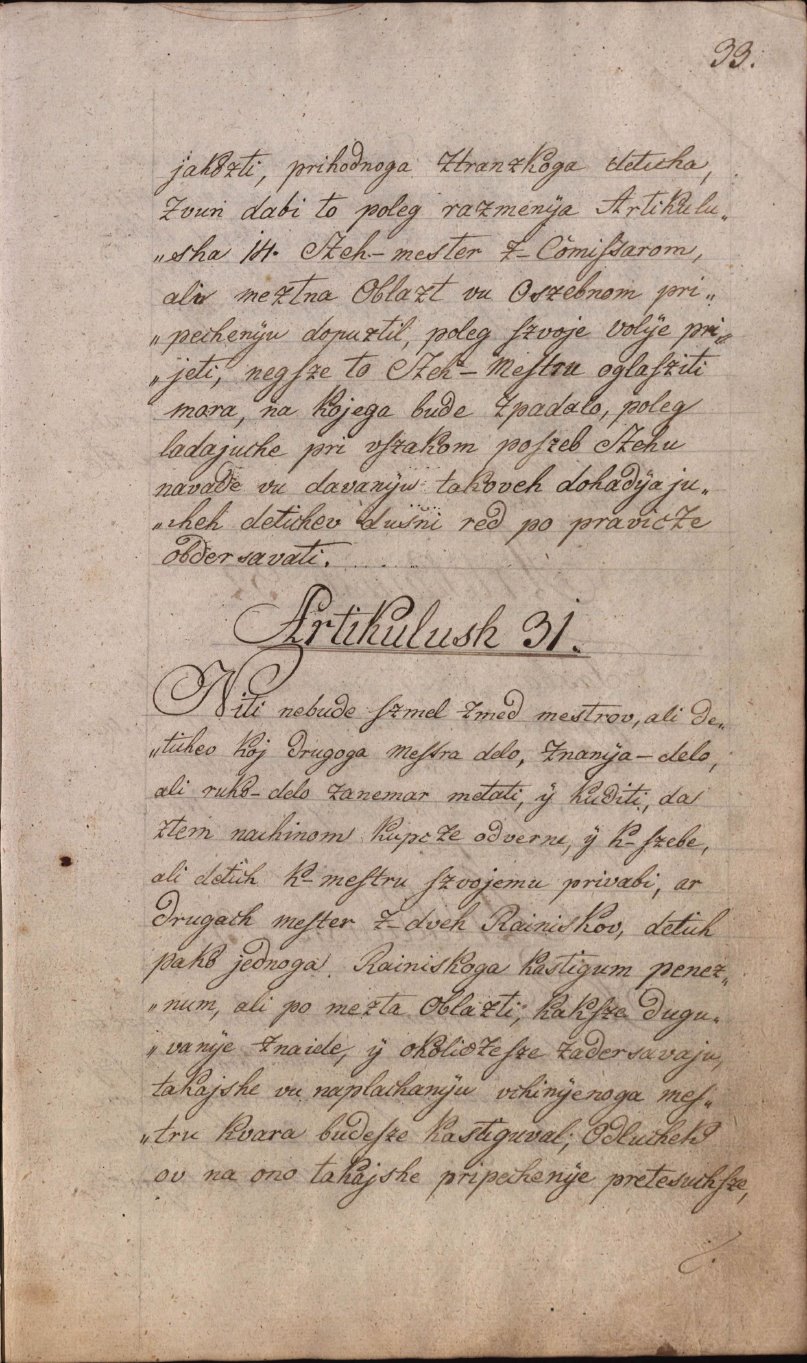 33.
jakozti, prihodnoga ztranzkoga deticha,
zvun dabi to poleg razmenÿa Artikulu„
„sha 14. Czeh-mester z-Comißarom,
ali meztna Oblazt vu Oszebnom pri„
„pechenÿu dopuztil, poleg szvoje volÿe pri„
„jeti, negsze to Czeh-Mestru oglasziti
mora, na kojega bude zpadalo, poleg
ladajuche pri vszakom poszeb Czehu
navade vu davanÿu takoveh dohadÿaju„
„cheh detichev dusni red po praviczze
obdersavati.
Artikulush 31.
Niti nebude szmel zmed mestrov, ali de„
„tichev koj drugoga mestra delo, znanÿa-delo,
ali ruko-delo zanemar metati, ÿ kuditi, da
ztem nachinom kupcze odverne, ÿ k-szebe,
ali detich k-mestru szvojemu privabi, ar
drugach mester z-dveh Rainiskov, detich
pako jednoga Rainiskoga kastigum penez„
„num, ali po mezta Oblazti, kaksze dugu„
„vanÿe znaide, ÿ okoliczesze zadersavaju,
takajshe vu naplachanÿu vchinÿenoga mes„
„tru kvara budesze kastiguval; Odluchek
ov na ono takajshe pripechenÿe pretesuchsze,